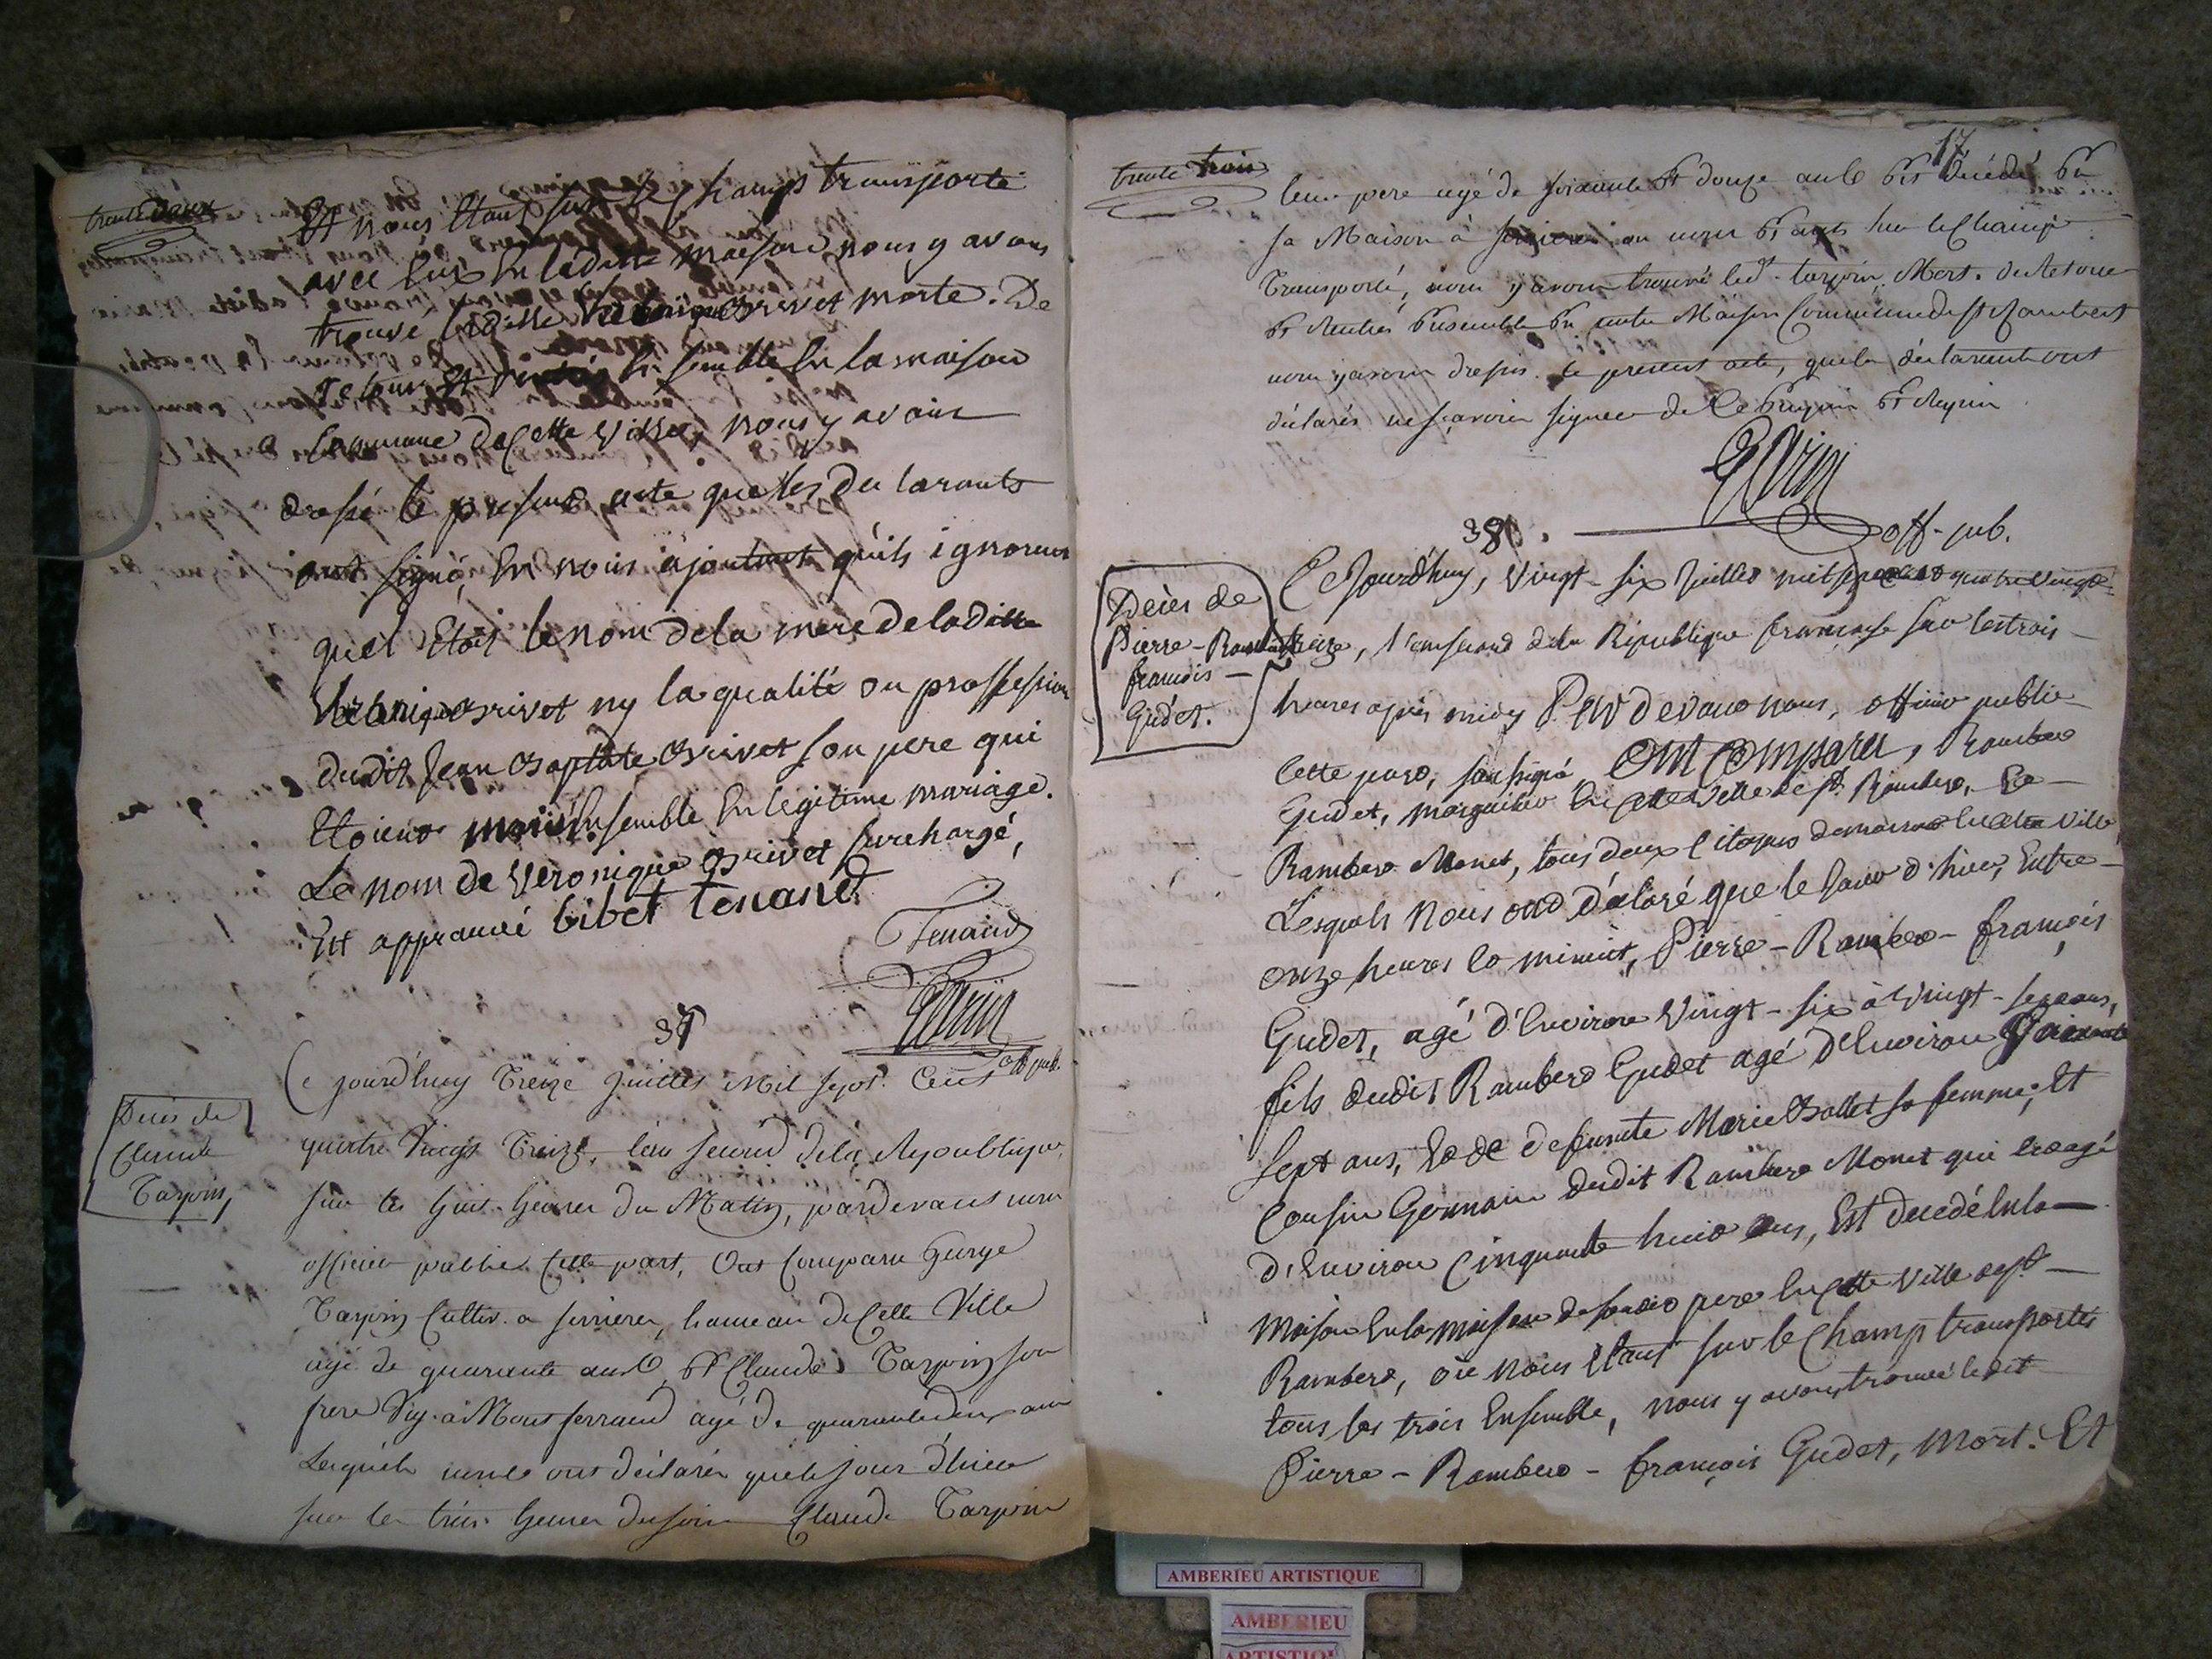 trente deux
Et nous étant sur le champs transporté
avec eux En laditte maison nous y avons
trouvé laditte Veronique Brivet morte. De
retour Et rentrés Ensemble En la maison
Commune de Cette ville, nous y avons
dressé le present acte que les déclarants
ont signé, En nous ajoutant qu'ils ignorent
quel Etoit le nom de la mere de laditte
Veronique Brivet ny la qualité ou proffession
dudit Jean Baptiste Brivet son pere qui
Etoient mariés Ensemble En legitime mariage.
Le nom de Veronique Brivet surchargé,
Est approuvé bibet tenand
Tenand
37
off pub.
Décès de
Claude
Tarpin,
Ce jourd'huy Treize Juillet Mil sept Cents
quatre Vingt Treize, l'an second de la Republique,
sur les huit heures du Matin, pardevant nous
officier public Cette part, Ont Comparu George
Tarpin Cultiv. a serrieres, hameau de Cette Ville
agé de quarante ans, Et Claude Tarpin son
frere Vig. à Montferrand agé de quarante deux ans
Lesquels nous ont déclarés que le jour d'hier
sur les trois heures du soir Claude Tarpin
17
trente trois
leur pere agé de soixante Et douze ans Est décédé En
sa Maison à serrieres ou nous Etants sur le Champ
Transporté, nous y avons trouvé led. tarpin Mort. de Retour
Et Rentrés Ensemble En notre Maison Commune de St Rambert
nous y avons dressés le present acte, que les déclarants ont
déclarés ne sçavoir signer de Ce Enquis Et Requis
off. pub.
38.
Décès de
Pierre-Rambert
françois
Gudet.
Ce Jourd'huy, vingt-six Juillet mil sept cent quatre vingt
treize, l'an second de la République française sur les trois
heures après midy Pardevant nous, officier public
Cette part, soussigné Ont Comparu, Rambert
Gudet, marguillier En Cette ville de St Rambert, Et
Rambert Monet, tous deux Citoyens demeurant En Cette ville
Lesquels Nous ont déclaré que le jour d'hier, Entre
onze heures Et minuit, Pierre-Rambert-françois
Gudet, agé d'Environ vingt-six à vingt-sept ans,
fils dudit Rambert Gudet agé d'Environ soixante
sept ans, Et de defunte Marie Ballet sa femme; Et
Cousin Germain dudit Rambert Monet qui Est agé
d'Environ Cinquante huit ans, Est decedé En la
Maison En la maison de sondit pere En Cette ville de St
Rambert, où nous étant sur le Champ transportés
tous les trois Ensemble, nous y avons trouvé ledit
Pierre-Rambert-françois Gudet, Mort. Et
AMBERIEU ARTISTIQUE
AMBERIEU
ARTISTIQU